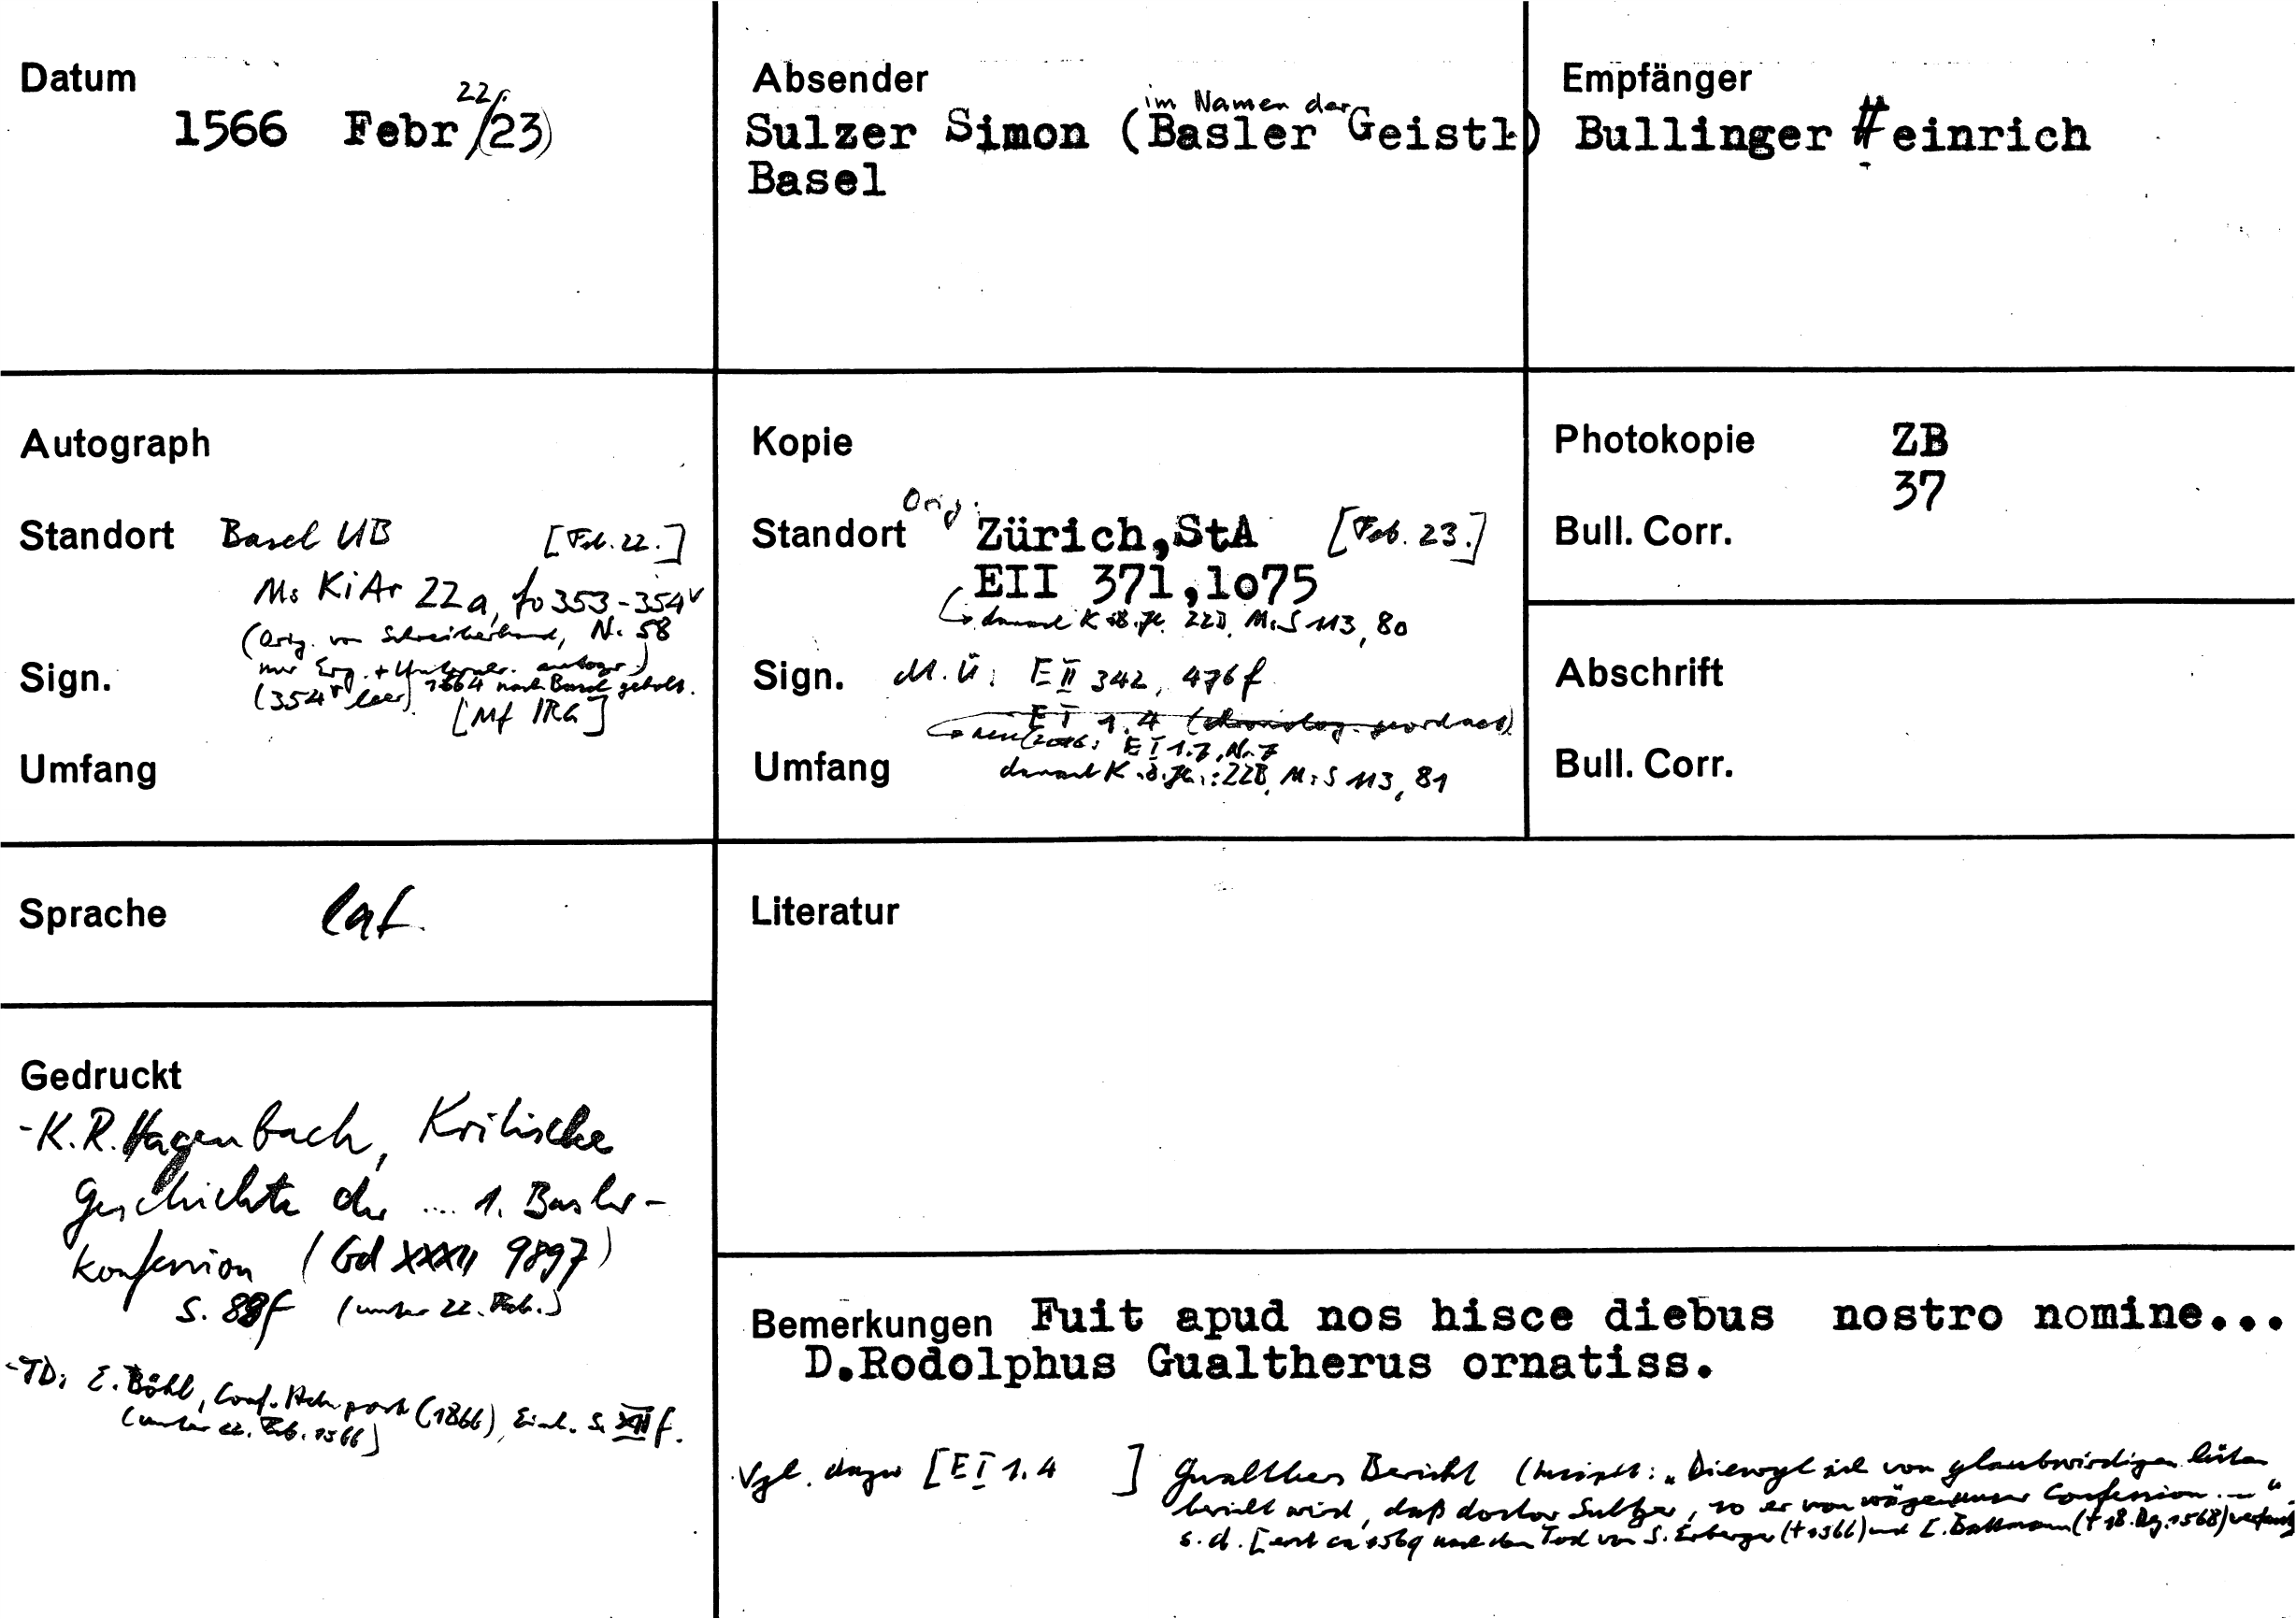 Datum
1566 Febr 22./(23)
Absender
im Namen der
Sulzer Simon (Basler Geistl.)
Basel
Empfänger
Bullinger Heinrich
Autograph
Standort Basel UB [Feb. 22.]
Ms KiAr 22a, fo 353-354v
(Orig. von Schreiberhand, Nr. 58
nur Erg. + Unterschr. autogr.)
Sign.
(354v leer) 1664 nach Basel geholt.
[Mf IRG]
Umfang
Kopie
Orig.
Standort Zürich,StA [Feb. 23.]
EII 371,1o75
danach K 18. Jh. ZZB, Ms S 113, 80
Sign. M. Ü: E II 342, 476f
E I 1.4 (chronolog. geordnet)
neu (2016: E I 1.7, Nr. 7
Umfang danach K 18. Jh.: ZZB, Ms S 113, 81
Photokopie ZB
37
Bull. Corr.
Abschrift
Bull. Corr.
Sprache lat.
Literatur
Gedruckt
-K. R. Hagenbach, Kritische
Geschichte der .... 1. Basler-
konfession (Gd XXXII 9897)
S. 88f (unter 22. Feb.)
-TD: E. Böhl, Conf. Helv. post (1866), Einl. S. XIII f.
(unter 22. Feb. 1566)
Bemerkungen Fuit apud nos hisce diebus nostro nomine...
D.Rodolphus Gualtherus ornatiss.
Vgl. dazu [E I 1.4 ] Gwalthers Bericht (Incipit: "Diewyl von glaubwirdigen lüten
bericht wird, daß doctor Sultzer, so er von wägen unser Confession ..."
s. d. [erst ca 1569 nach dem Tod von S. (†1566) und (†18. 1568) verfasst]